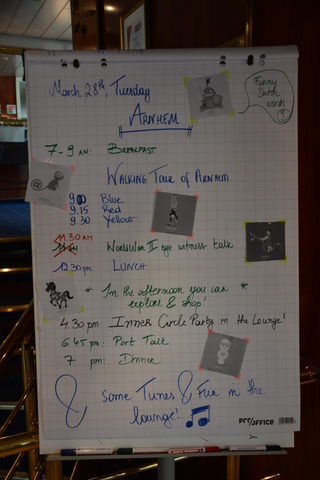 March 28th, Tuesday
Funny
Dutch
words
ARNHEM
7-9 AM: BREAKFAST
WALKING TOUR OF ARNHEM
9.00 Blue
9.15 Red
9.30 Yellow
11.30 AM
WORLDWAR II eye witness talk
12.30 pm LUNCH
* In the afternoon you can *
explore & shop!
4.30 pm INNER CIRCLE PARTY in the Lounge!
6.45 pm: Port Talk
7 pm: Dinner
& some Tunes & Fun in the
lounge!
PRO/OFFICE